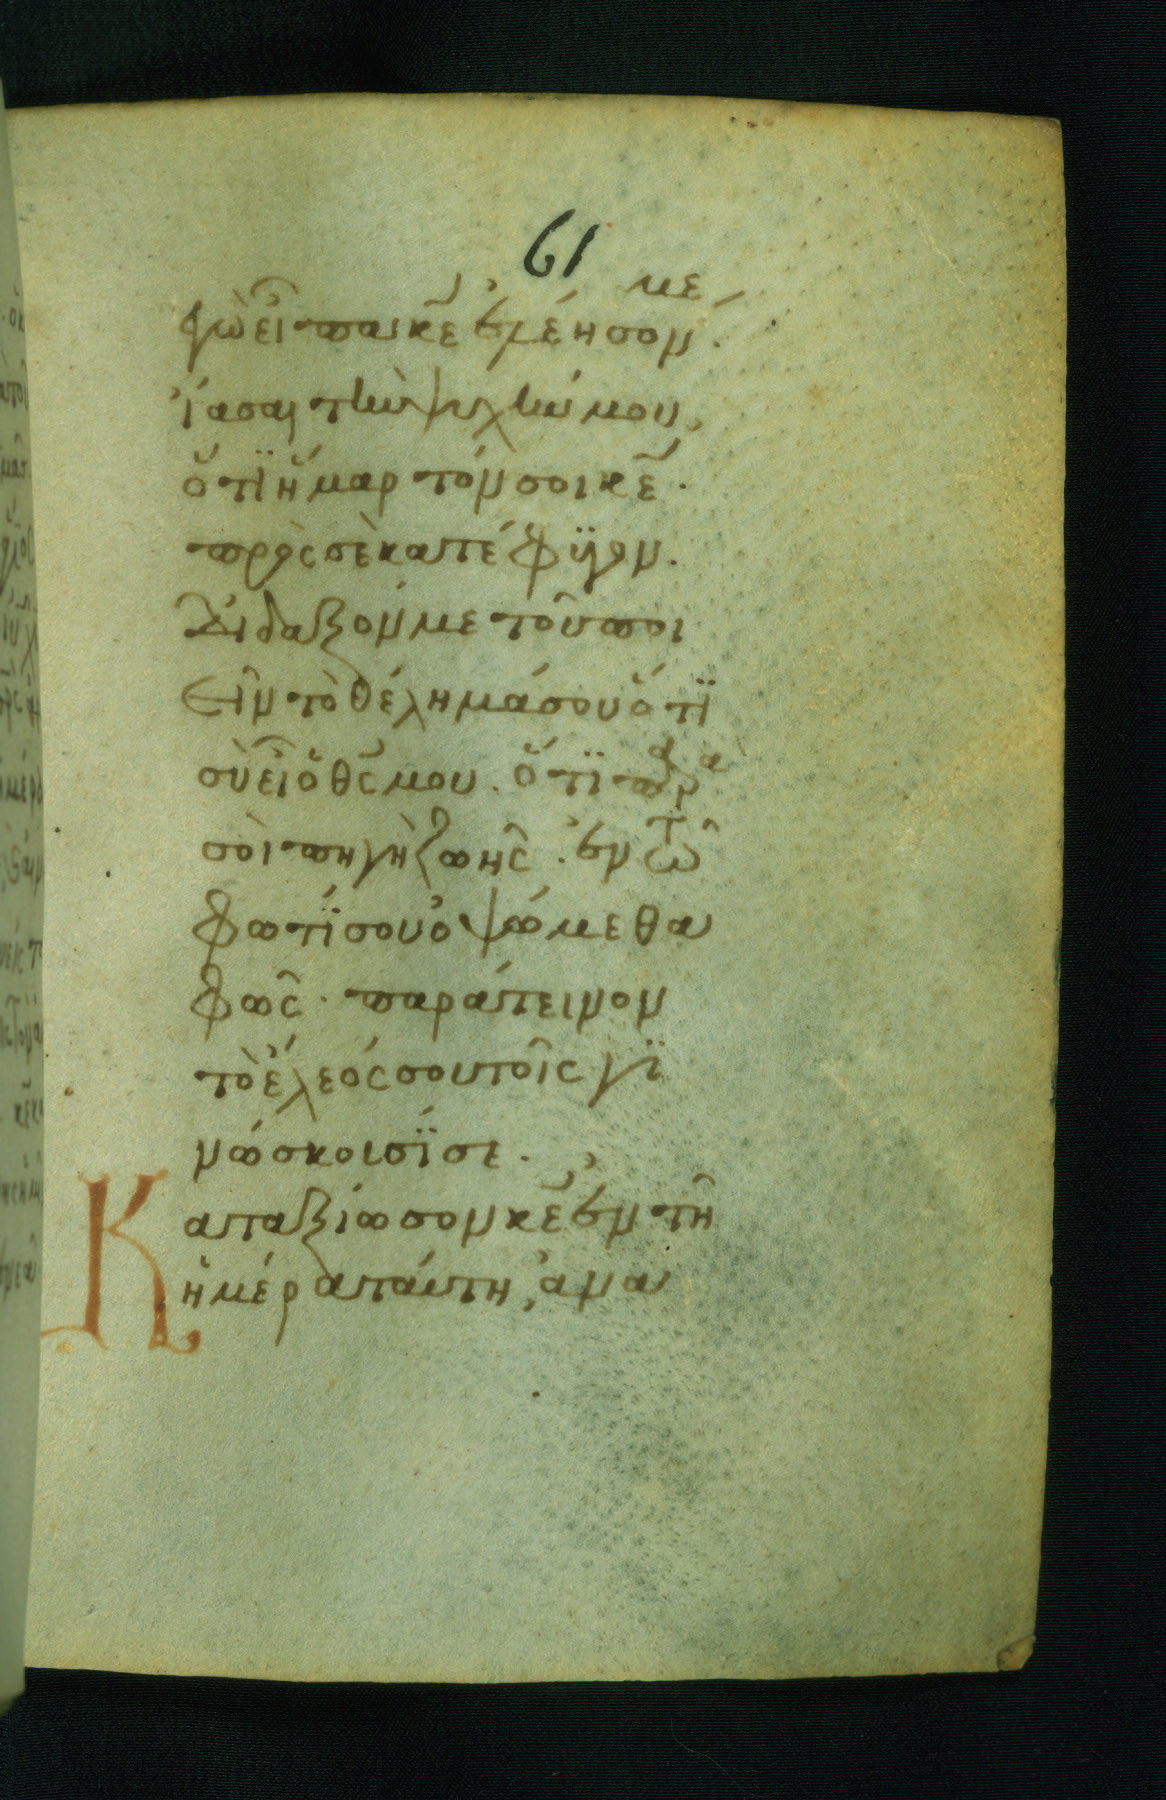 61
με
ἐγὼ εἶπα κε ἐλέησον.
ἴασαι τὴν ψυχήν μου,
ὅτϊ ἥμαρτόν σοι κε.
πρὸς σὲ κατέφϋγον.
Δίδαξόν με τοῦ ποι
εῖν τὸ θέλημά σου ὅτϊ
σὺ εἶ ὁ θς μου. ὅτϊ παρα
σοὶ πηγὴ ζωῆς. ἐν τῶ
φωτΐ σου ὀψώμεθα
φῶς. παράτεινον
τὸ ἔλεός σου τοῖς γϊ
νώσκουσΐ σε.
Καταξίωσον κε ἐν τῆ
ἡμέρα ταύτη, ἀνα